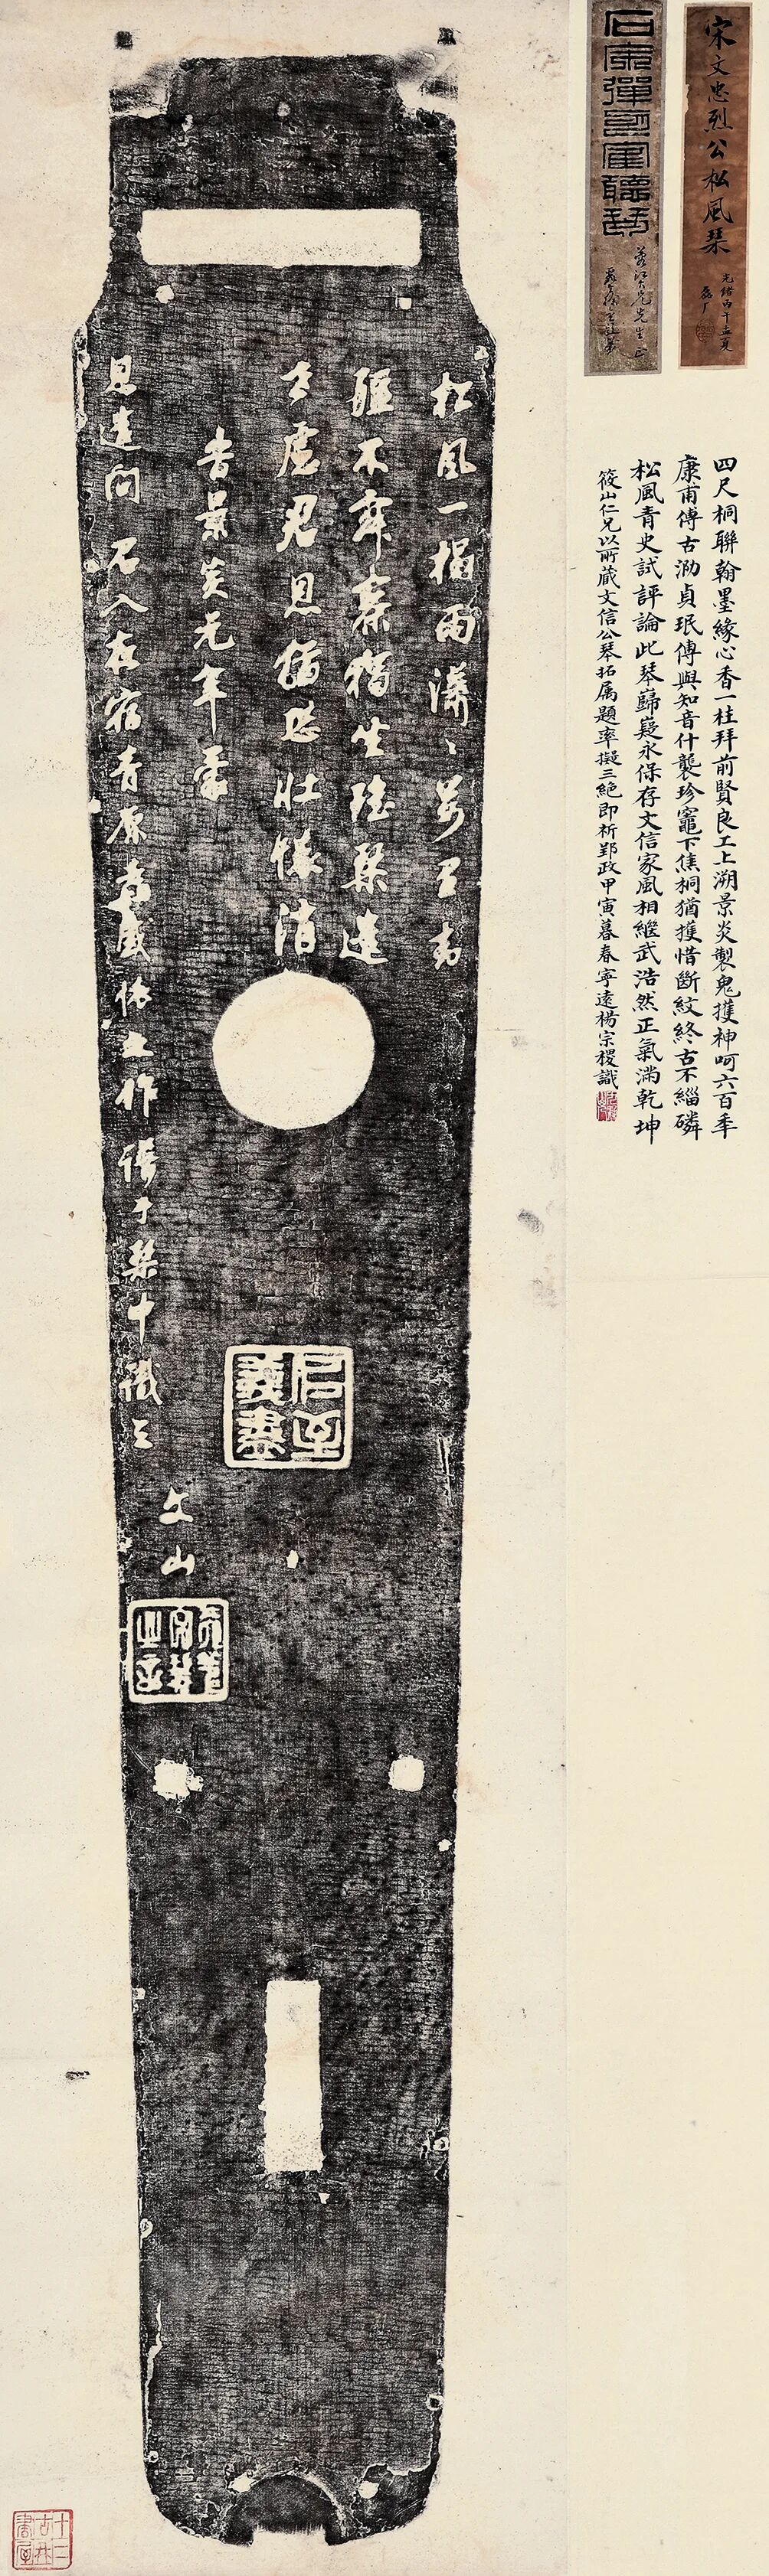 宋文忠烈公松風琴
光緒丙午孟夏
四尺桐聯翰墨緣心香一柱拜前賢良工上溯景炎製鬼擭神呵六百年
康甫傳古泐貞珉傳與知音什襲珍竈下焦桐猶擭惜斷紋終古不緇磷
松風青史試評論此琴巋嶷永保存文信家風相繼武浩然正氣滿乾坤
筱山仁兄以所藏文信公琴拓属題率擬三絕即祈郢政甲寅暮春寧遠楊宗稷識
松風一榻雨瀟瀟萬里
封不寐
獨坐瑤琴遣
世慮君恩猶恐壯懷消
時景炎元年蒙
恩遣問 召入夜宿青原寺感懷之作譜于琴中識之
文山
十二古琴書屋